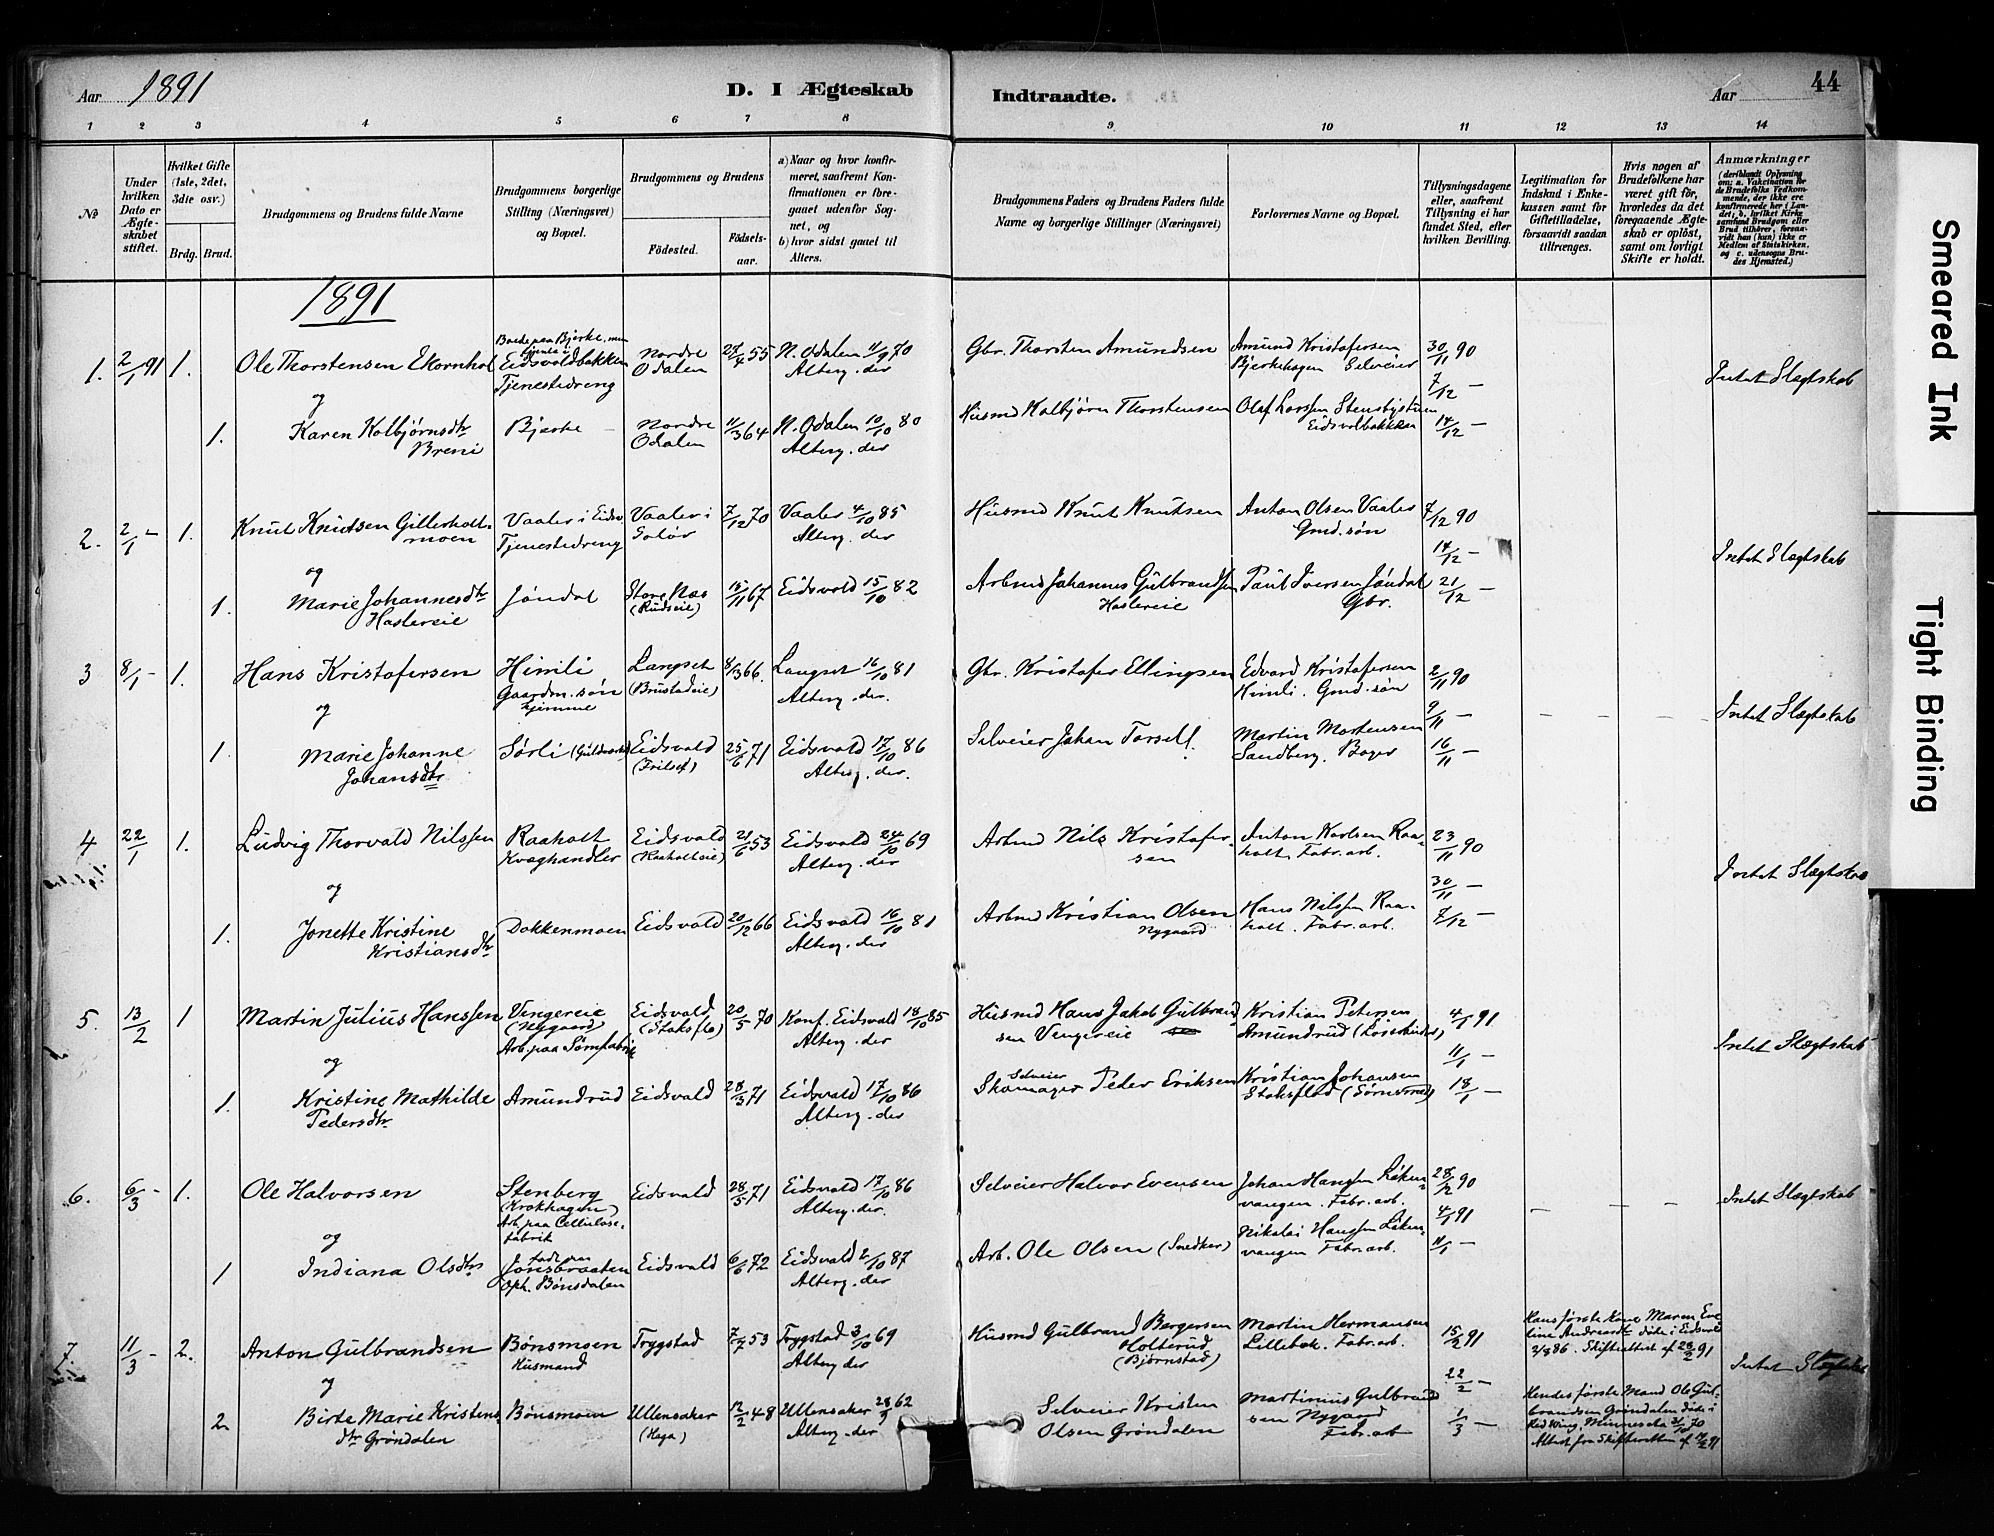 Aar 1891
D. I Ægteskab Indtraadte.
Aar 44
1 2 3 4 5 6 7 8 9 10 11 12 13 14
No
Under hvilken Dato er Ægteskabet stiftet.
Hvilket Gifte (1ste, 2det, 3die osv.)
Brdg. Brud.
Brudgommens og Brudens fulde Navne
Brudgommens borgerlige Stilling (Næringsvei) og Bopæl.
Brudgommens og Brudens
Fødested.
Fødselsaar.
a) Naar og hvor konfirmeret, saafremt Konfirmationen er foregaaet udenfor Sognet, og
b) hvor sidst gaaet til Alters.
Brudgommens Faders og Brudens Faders fulde Navne og borgerlige Stillinger (Næringsvei)
Forlovernes Navne og Bopæl.
Tillysningsdagene eller, saafremt Tillysning ei har fundet Sted, efter hvilken Bevilling.
Legitimation for Indskud i Enkekassen samt for Giftetilladelse, forsaavidt saadan tiltrænges.
Hvis nogen af Brudefolkene har været gift før, hvorledes da det foregaaende Ægteskab er opløst, samt om lovligt Skifte er holdt.
Anmærkninger (deriblandt Oplysning om: a. Vaccination for de Brudefolks Vedkommende, der ikke ere konfirmerede her i Landet; b. hvilket Kirkesamfund Brudgom eller Brud tilhører, forsaavidt han (hun) ikke er Medlem af Statskirken, og c. udensogns Brudes Hjemsted.)
1891
1. 2/1 91 1. Ole Thorstensen Ekornhol
Boede paa Bjerke, men
Eidsvoldbakken
Tjenestedreng
Nordre Odalen 27/4 55
N. Odalen 11/9 70
Alterg. der
Gbr. Thorsten Amundsen
Amund Kristofersen
Bjerkehagen Selveier
30/11 90
7/12 —
14/12 —
Intet Slægtskab
og
1. Karen Kolbjørnsdtr
Breni
Bjerke
Nordre Odalen 11/3 64
N. Odalen 10/10 80
Alterg. der
Husmd Kolbjørn Thorstensen
Olaf Larssen Stensbystuen
Eidsvolbakken
2. 2/1 — 1. Knut Knutsen Gillerholtmoen
Vaaler i Eidsv.
Tjenestedreng
Vaaler i Solør 7/12 70
Vaaler 4/10 85
Alterg. der
Husmd Knut Knutsen
Anton Olsen Vaaler
Gmd. søn
7/12 90
14/12 —
21/12 —
Intet Slægtskab
og
1. Marie Johannesdtr
Haslereie
Jøndal
Store Næs
(Rudseie)
15/11 67
Eidsvold 15/10 82
Arbmd Johannes Gulbrandsen
Haslereie
Paul Iversen Jøndal
Gbr.
3 8/1 — 1. Hans Kristofersen
Himli
Gaardm. søn
hjemme
Langset
(Brustadeie)
8/3 66.
Langset 16/10 81
Alterg. der.
Gbr. Kristofer Ellingsen
Edvard Kristofersen
Himli. Gmd. søn
2/11 90
9/11 —
16/11 —
— — — Intet Slægtskab
og
1. Marie Johanne
Johansdtr
Sørli (Guldverket)
Eidsvold
25/6 71
Eidsvold 17/10 86
Alterg. der.
Selveier Johan Torsell
Martin Mortensen
Sandberg. Bager
4 22/1 1. Ludvig Thorvald Nilssen
Raaholt
Kvæghandler
Eidsvold
(Raaholteie)
21/6 53
Eidsvold 24/10 69
Alterg. der
Arbmd Nils Kristofersen
Anton Karlsen Raaholt Fabr. arb.
23/11 90
30/11 —
7/12 —
Intet Slægtskab
og
1. Jonette Kristine
Kristiansdtr
Dokkenmoen
Eidsvold 20/12 66
Eidsvold 16/10 81
Alterg. der
Arbmd Kristian Olsen
Nygaard
Hans Nilssen Raaholt. Fabr. arb.
5. 13/2 1 Martin Julius Hanssen
Vengereie
(Nygaard)
Arb. paa Sørnfabrik
Eidsvold
(Staksflo)
20/5 70
Konf. Eidsvold 18/10 85
Alterg. der
Husmd Hans Jakob Gulbrandsen Vengereie
Kristian Petersen
Amundrud
4/1 91
11/1 —
18/1 —
Intet Slægtskab
og
1. Kristine Mathilde
Pedersdtr
Amundrud
Eidsvold 28/3 71
Eidsvold 17/10 86
Alterg. der
Selveier
Skomager Peder Eriksen
Kristian Johansen
Staksflod
6. 6/3 — 1. Ole Halvorsen
Stenberg
(Krokhagen)
Arb. paa Cellulosefabrik
Eidsvold 28/5 71
Eidsvold 17/10 86
Alterg. der.
Selveier Halvor Evensen
Johan Hanssen Løkenvangen. Fabr. arb.
28/12 90
4/1 91
11/1 —
— — — Intet Slægtskab
og
1 Indiana Olsdtr
Jønsbraaten
Oph. Bønsdalen
Eidsvold 6/6 72
Eidsvold 2/10 87
Alterg. der
Arb. Ole Olsen (Snedker)
Nikolai Hanssen Løkenvangen Fabr. arb.
7. 11/3 — 2. Anton Gulbrandsen
Bønsmoen
Husmand
Trygstad 7/7 53
Trygstad 3/10 69
Alterg der
Husmd Gulbrand Bergersen
Holterud
(Bjørnstad)
Martin Hermansen
Lillebæk. Fabr. arb.
15/2 91
22/2 —
1/3 —
Hans første Kone Maren Eveline Andreasdtr døde i Eidsvold 2/8 86. Skifteattest af 28/2 91
Intet Slægtskab
og
2 Birte Marie Kristensdtr Grøndalen
Bønsmoen
Ullensaker
(Haga)
12/2 48
Ullensaker 28/9 62
Alterg. der
Selveier Kristen
Olsen Grøndalen
Martinius Gulbrandsen Nygaard
Fabr. arb
Hendes første Mand Ole Gulbrandsen Grøndalen døde i Red Wing, Minnesota 3/10 70
Attest fra Skifteretten af 12/2 91
Smeared Ink
Tight Binding